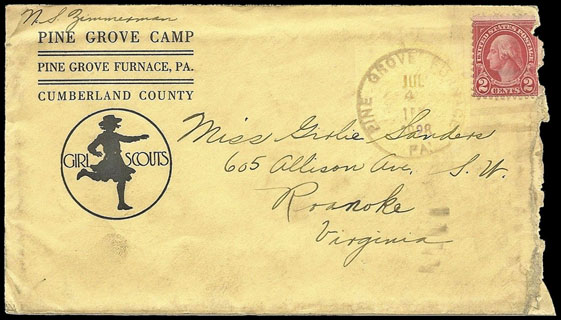 N S Zimmerman
PINE GROVE CAMP
PINE GROVE FURNACE, PA.
CUMBERLAND COUNTY
GIRL SCOUTS
PINE GROVE
JUL
4
PA.
UNITED STATES POSTAGE
2 CENTS 2
Miss Girlie Sanders
605 Allison Ave, S. W.
Roanoke
Virginia